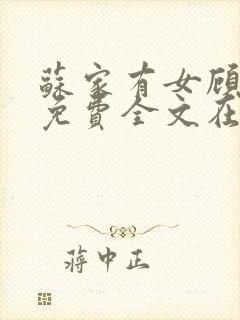 蘇家有女顧
免費全文在
蔣中正